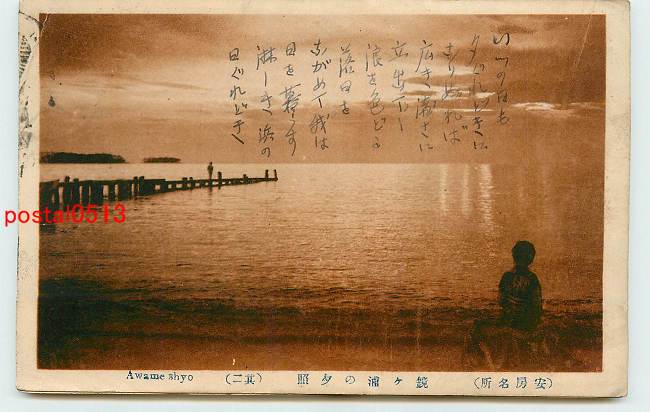 いつの日も
夕ぐれどきに
なりぬれば
広き渚に
立出でし
浪を色どる
落日を
ながめて我は
日を暮らす
淋しき浜の
日ぐれどきへ
postal0513
(安房名所) 鏡ヶ浦の夕照 (其二) Awame shyo